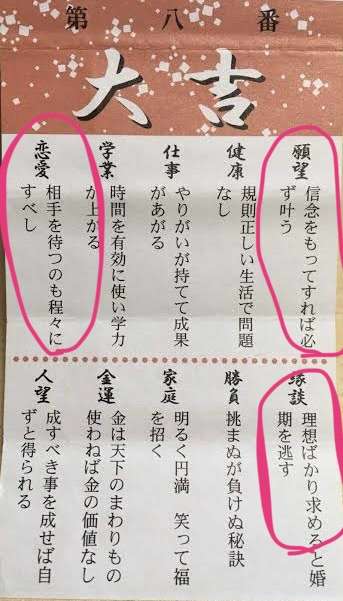 第八番
大吉
願望
信念をもってすれば必
ず叶う
健康
規則正しい生活で問題
なし
仕事
やりがいが持てて成果
があがる
学業
時間を有効に使い学力
が上がる
恋愛
相手を待つのも程々に
すべし
縁談
理想ばかり求めると婚
期を逃す
勝負
挑まぬが負けぬ秘訣
家庭
明るく円満 笑って福
を招く
金運
金は天下のまわりもの
使わねば金の価値なし
人望
成すべき事を成せば自
ずと得られる